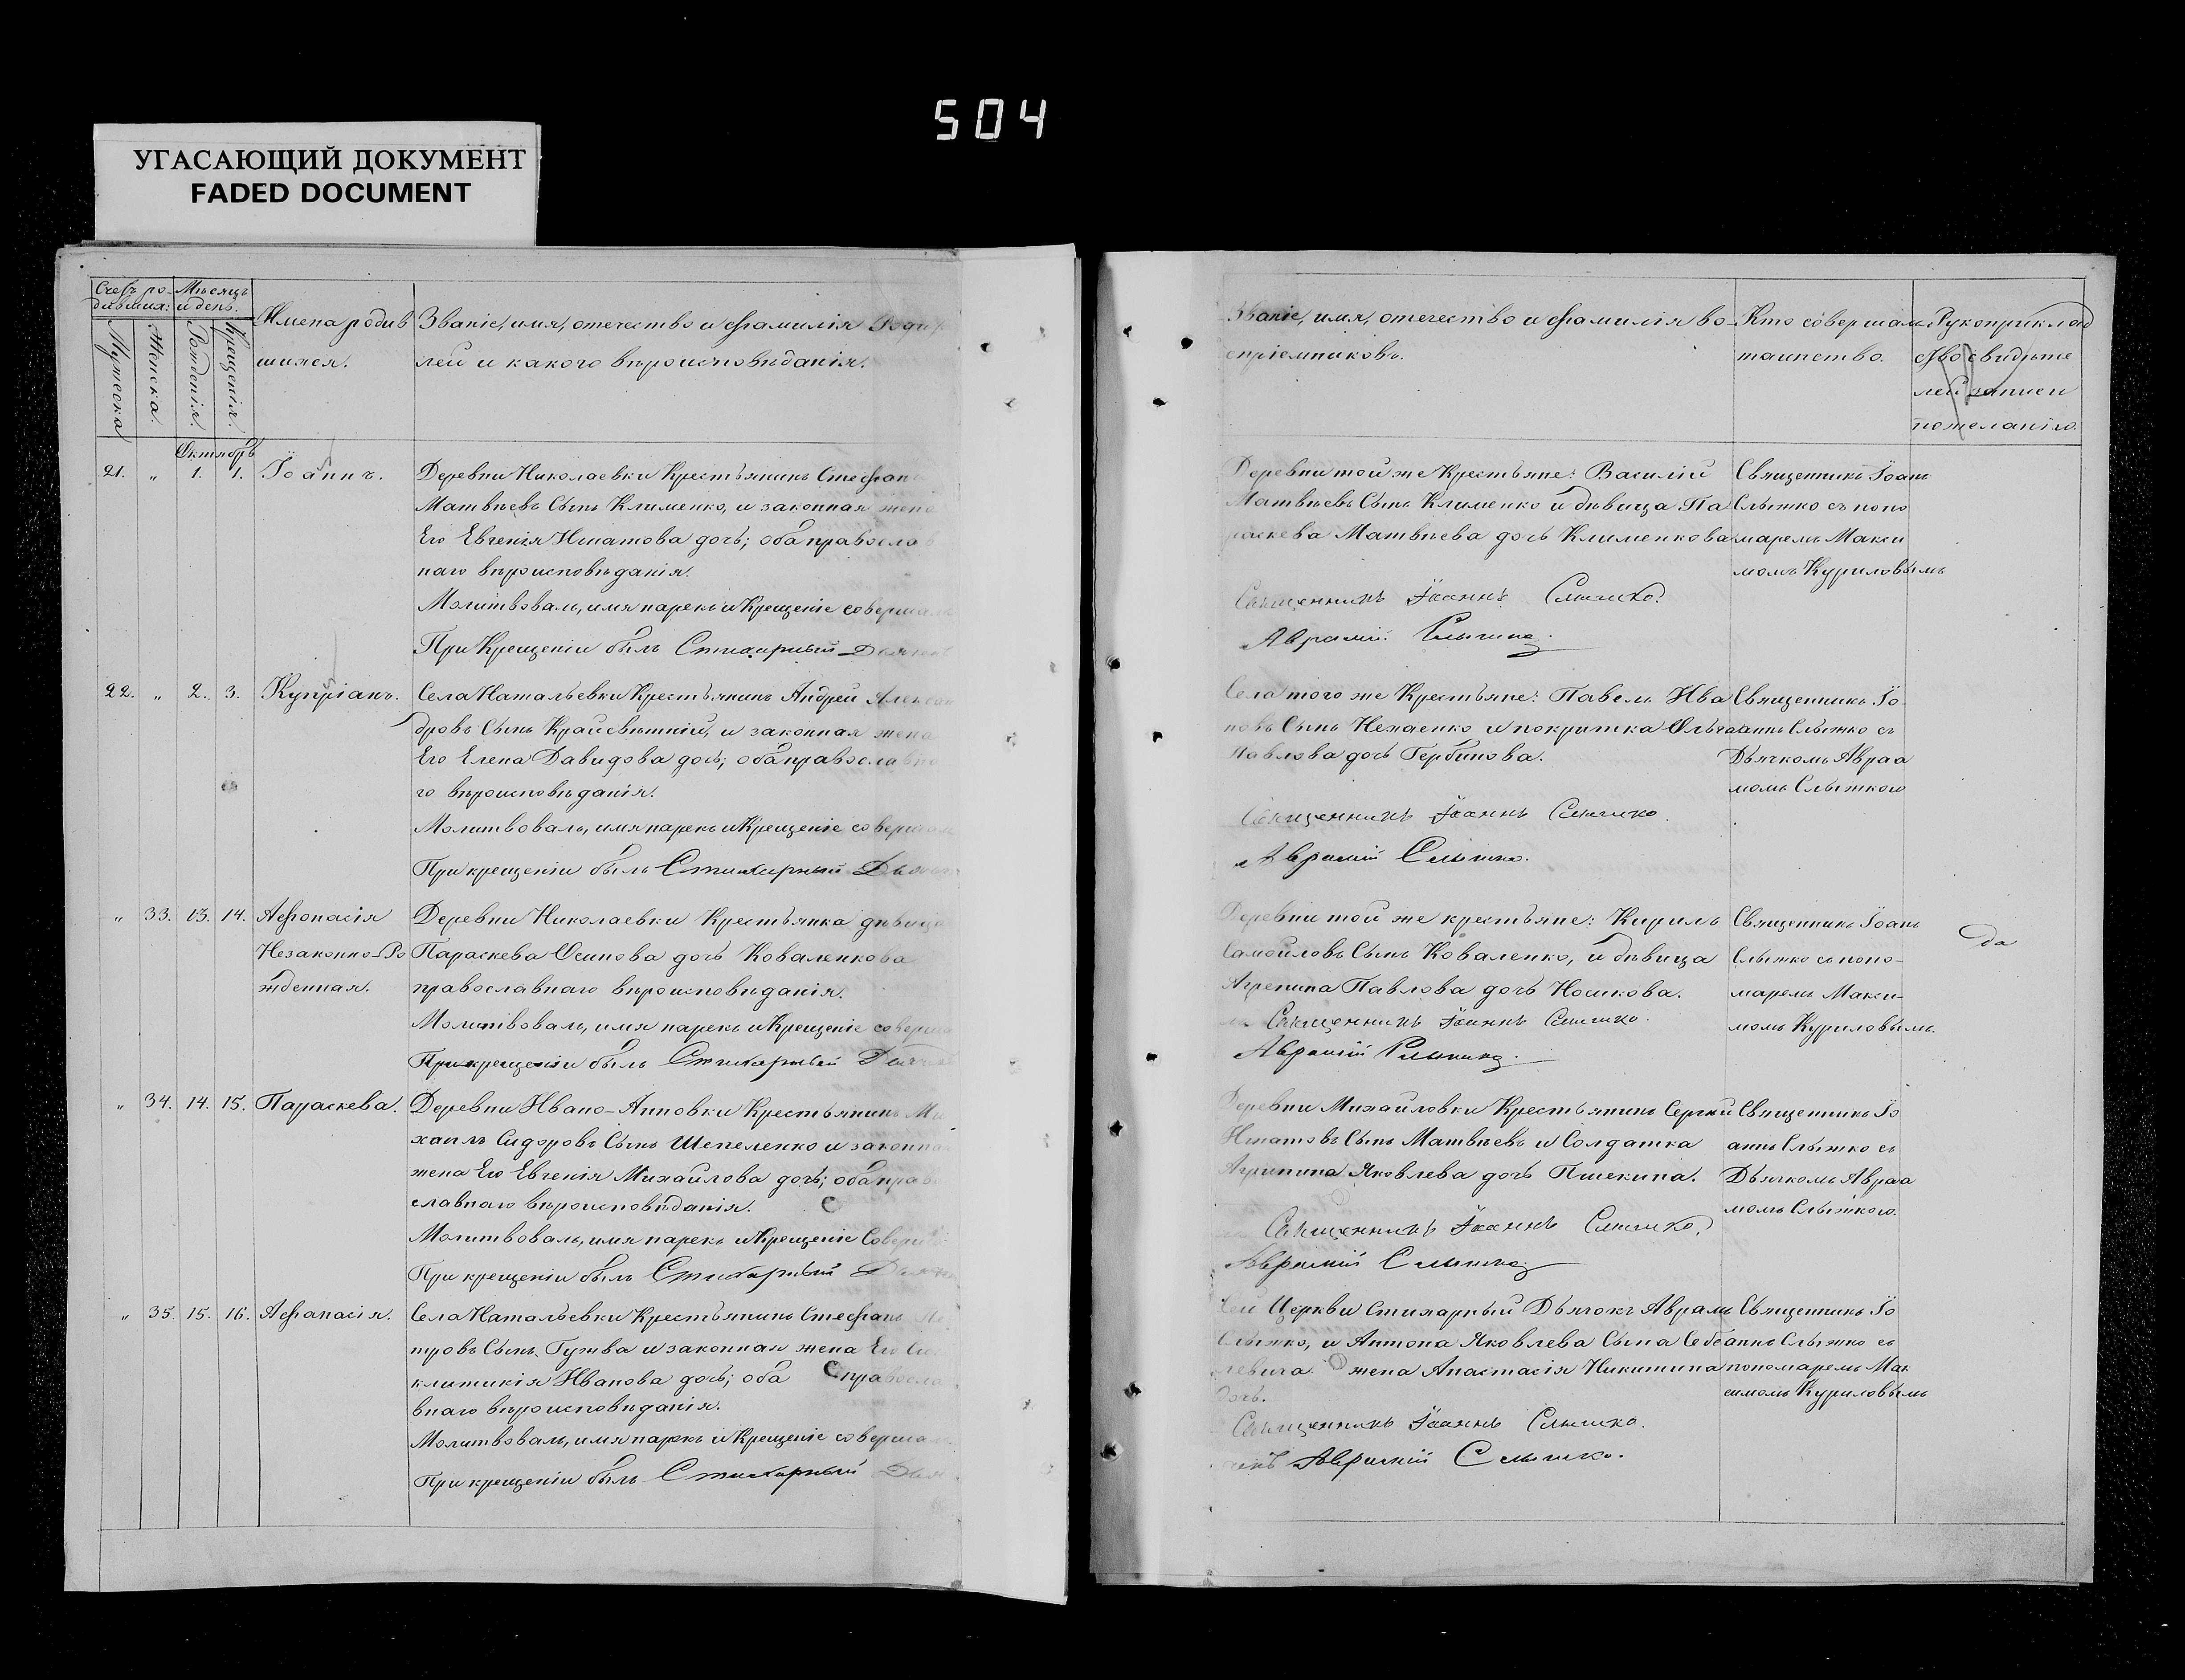 504
УГАСАЮЩИЙ ДОКУМЕНТ
FADED DOCUMENT
Счетъ ро-
дившихся:
Мѣсяцъ
и день.
Мужеска
Женска.
Рожденія.
Крещенія.
Имена родив
шихся.
Званіе, имя, отечество и фамилія Родит
лей и какого вѣроисповѣданія.
Октябрь
21. „ 1. 1. Іоаннъ.
Деревни Николаевки Крестьянинъ Стефан
Матвѣевъ Сынъ Клименко, и законная жена
Его Евгенія Игнатова дочь; оба православ
наго вѣроисповѣданія.
Молитвовалъ, имя нарекъ и Крещеніе совершал
При Крещеніи былъ Стихарный Дьячекъ
22. „ 2. 3. Купріанъ.
Села Натальевки Крестьянинъ Андрей Алексан
дровъ Сынъ Крайсвѣтній, и законная жена
Его Елена Давидова дочь; оба православна
го вѣроисповѣданія.
Молитвовалъ, имя нарекъ и Крещеніе совершал
При крещеніи былъ Стихарный Дьячек
„ 33. 13. 14. Афонасія
Незаконно-Ро
жденная.
Деревни Николаевки Крестьянка дѣвица
Параскева Осипова дочь Коваленкова
православнаго вѣроисповѣданія.
Молитвовалъ, имя нарекъ и Крещеніе соверша
При крещеніи былъ Стихарный Дьячек
„ 34. 14. 15. Параскева.
Деревни Ивано-Анновки Крестьянинъ Ми
хаилъ Сидоровъ Сынъ Шепеленко и законна
жена Его Евгенія Михайлова дочь; оба право
славнаго вѣроисповѣданія.
Молитвовалъ, имя нарекъ и Крещеніе Соверш
При крещеніи былъ Стихарный Дьячек
„ 35. 15. 16. Афанасія.
Села Натальевки Крестьянинъ Стефанъ Пе
тровъ Сынъ Гужва и законная жена Его Син
клитикія Иванова дочь; оба правосла
внаго вѣроисповѣданія.
Молитвовалъ, имя нарекъ и Крещеніе соверша
При крещеніи былъ Стихарный Дья
Званіе, имя, отечество и фамилія во-
спріемниковъ.
Кто совершалъ
таинство.
Рукоприклад
ство свидѣте
лей записи
по желанію.
Деревни той же Крестьяне: Василій
Матвѣевъ Сынъ Клименко и дѣвица Па
раскева Матвѣева дочь Клименкова
Священникъ Іоаннъ Слыжко.
Аврамій Слыжко.
Священникъ Іоанъ
Слыжко съ поно
маремъ Макси
момъ Куриловымъ
Села того же Крестьяне: Павелъ Ива
новъ Сынъ Нехаенко и покритка Ольга
Павлова дочь Гербинова.
Священникъ Іоаннъ Слыжко.
Аврамій Слыжко.
Священникъ Іо-
аннъ Слыжко съ
Дьячкомъ Авраа
момъ Слыжкого
Деревни той же крестьяне: Кирилъ
Самойловъ Сынъ Коваленко, и дѣвица
Агрепина Павлова дочь Носикова.
Священникъ Іоаннъ Слыжко.
Аврамій Слыжко.
Священникъ Іоанъ
Слыжко съ поно-
маремъ Макси-
момъ Куриловымъ.
да
Деревни Михайловки Крестьянинъ Сергий
Игнатовъ Сынъ Матвѣевъ и Солдатка
Агрипина Яковлева дочь Пшекина.
Священникъ Іоаннъ Слыжко.
Аврамій Слыжко
Священникъ Іо
аннъ Слыжко съ
Дьячкомъ Авраа
момъ Слыжкого.
сей Церкви стихарный Дьячокъ Аврамъ
Слыжко, и Антона Яковлева Сына Себе
левича жена Анастасія Никитина
дочь.
Священникъ Іоаннъ Слыжко.
Аврамій Слыжко.
Священникъ Іо
аннъ Слыжко съ
пономаремъ Мак
симомъ Куриловымъ